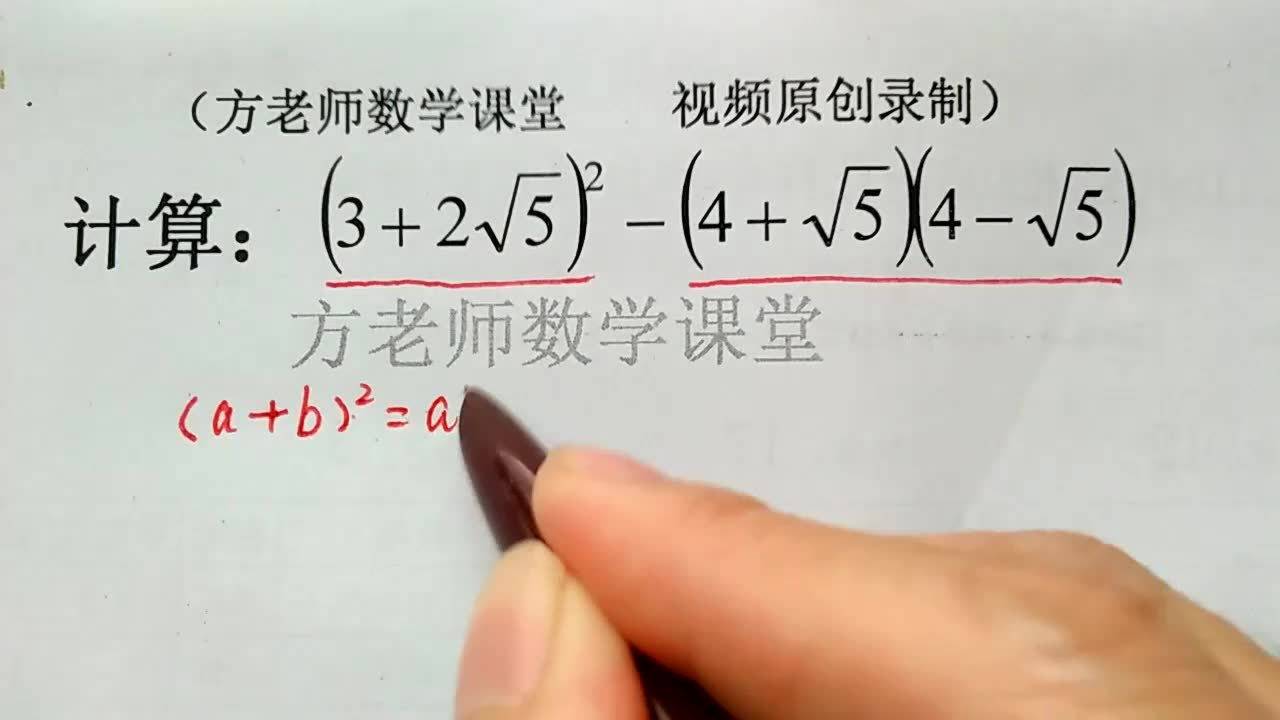 （方老师数学课堂 视频原创录制）
计算：(3+2√5)²−(4+√5)(4−√5)
方老师数学课堂
(a+b)²=a